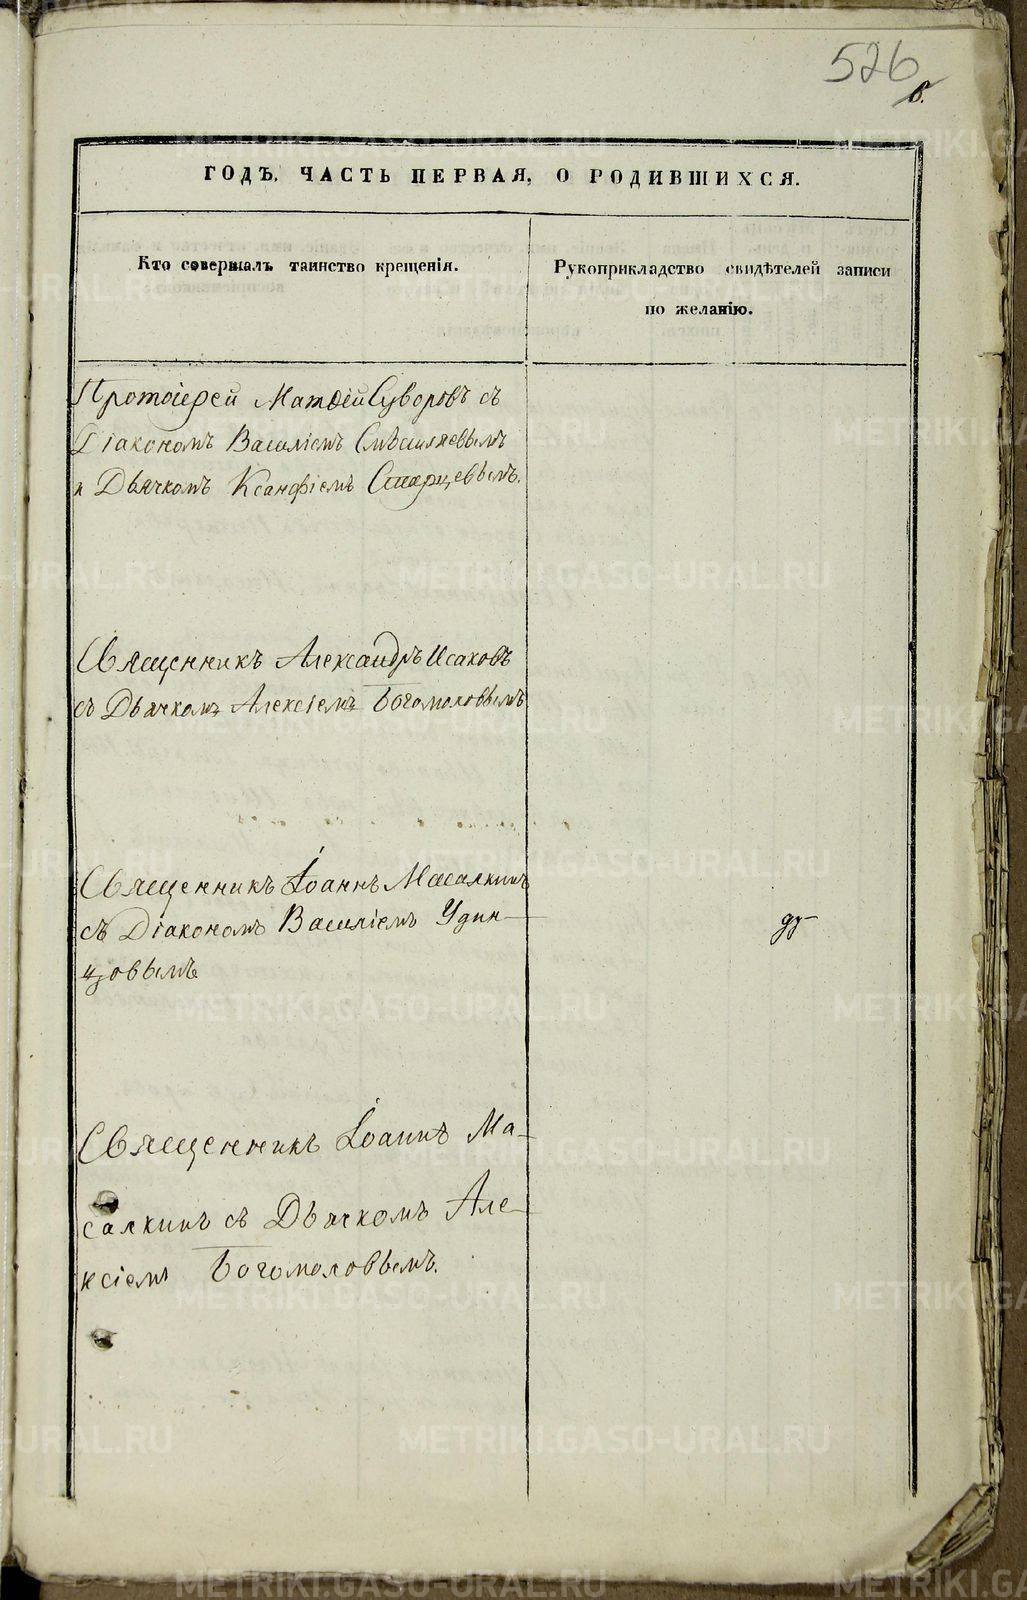 526
6.
ГОДЪ, ЧАСТЬ ПЕРВАЯ, О РОДИВШИХСЯ.
Кто совершалъ таинство крещенія.
Рукоприкладство свидѣтелей записи
по желанію.
Протоіерей Матѳей Суворовъ съ
Діакономъ Василіемъ
и Дьячкомъ Ксанфіемъ Старцевымъ.
Священникъ Александръ Исаковъ
съ Дьячкомъ Алексіемъ Богомоловымъ
Священникъ Іоаннъ Масалкинъ
съ Діакономъ Василіемъ Удин-
цовымъ
Священникъ Іоаннъ Ма-
салкинъ съ Дьячкомъ Але-
ксіемъ Богомоловымъ.
METRIKI.GASO-URAL.RU